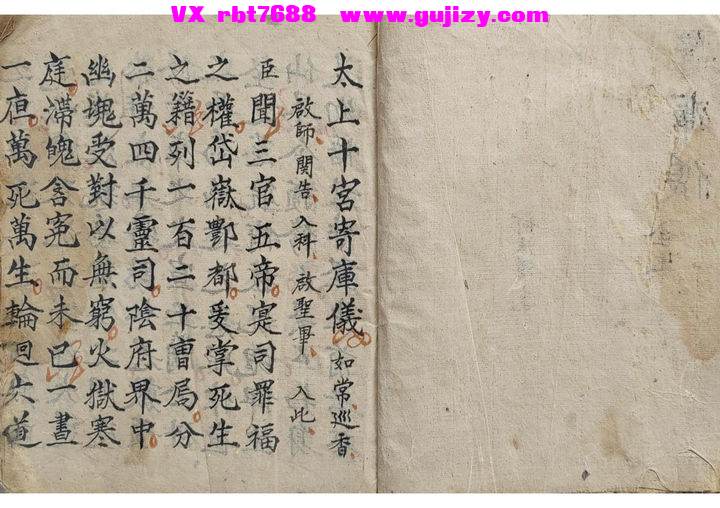 VX rbt7688 www.gujizy.com
太上十宮寄庫儀 如常巡香
啟師 関告 入科 啟聖畢 入此
臣聞三官五帝寔司罪福
之權岱嶽酆都爰掌死生
之籍列一百二十曹局分
二萬四千靈司陰府界中
幽魂受對以無窮火獄寒
庭滯魄含冤而未已一晝
一夜萬死萬生輪回六道